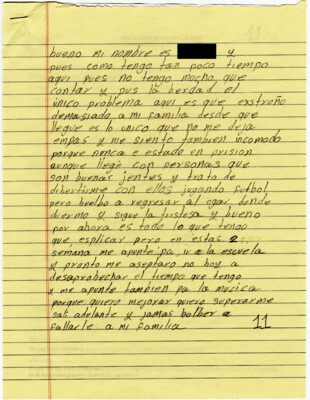 bueno mi nombre es y
pues como tengo tan poco tiempo
aqui pues no tengo mucho que
contar y pus la berdad el
unico problema aqui es que exstroño
demasiado a mi familia desde que
llegue es lo unico que no me deja
enpas y me siento tambien incomodo
porque nenca e estado en prision
aunque llege con personas que
son buenas jentes y trato de
dibertirme con ellos jugando futbol
pero buelbo a regresar al ogar donde
duermo y sigue la tristesa y bueno
por ahora es todo lo que tengo
que esplicar pero en estas 2
semana me apunte pa ir a la escuela
y pronto me aseptaro no boy a
desaprobechar el tiempo que tengo
y me apunte tambien pa la mucica
porque quiero mejorar quiero superarme
sali adelante y jamas bolber a
fallarle a mi familia
11